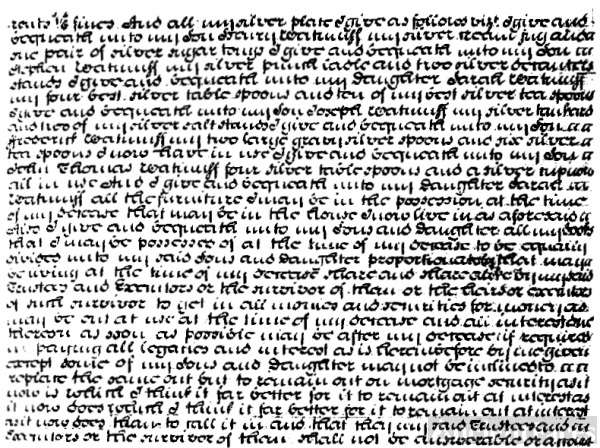 rents &c fines. And all my silver plate I give as follows viz. I give and
bequeath unto my son Henry my silver cream jug and a
one pair of silver sugar tongs I give and bequeath unto my son
Stephen my silver punch ladle and two silver decanters
stands I give and bequeath unto my daughter Sarah
my four best silver table spoons and ten of my best silver tea spoons
I give and bequeath unto my son Joseph my silver tankard
and two of my silver salt stands I give and bequeath unto my son
Frederick my two large gravy silver spoons and six silver
tea spoons I now have in use I give and bequeath unto my son
John Thomas four silver table spoons and a silver
all in use And I give and bequeath unto my daughter Sarah
all the furniture I may be in the possession at the time
of my decease that may be in the house I now live in as aforesaid
Also I give and bequeath unto my sons and daughter all my books
that I may be possessed of at the time of my decease to be equally
divided unto my said sons and daughter proportionately that may
be living at the time of my decease share and share alike by my said
Trustees and Executors or the survivor of them or the heirs or executors
of such survivor to get in all monies and securities for money as
may be out at use at the time of my decease and all interest due
thereon as soon as possible may be after my decease if required
in paying all legacies and interest as is hereinbefore by me given
except some of my sons and daughter may not be inclined to
replace the same out but to remain out on mortgage security as it
now is which I think it far better for it to remain out at interest
it now does which I think it far better for it to remain out at interest
as it now does than to call it in and that they my said Trustees and
Executors or the survivor of them shall not be answerable or